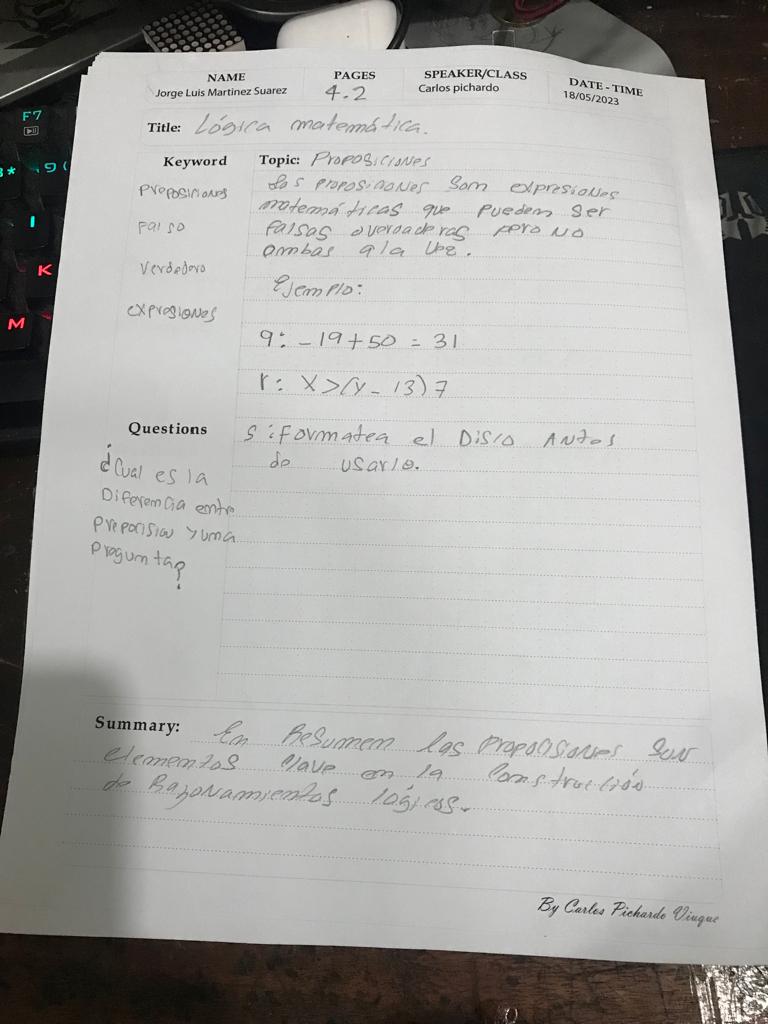 F7
I
K
M
NAME
Jorge Luis Martinez Suarez
PAGES
4.2
SPEAKER/CLASS
Carlos pichardo
DATE - TIME
18/05/2023
Title: Lógica matemática.
Keyword
proposiciones
Falso
Verdadero
expresiones
Topic: Proposiciones
Las proposiciones son expresiones
matemáticas que pueden ser
falsas o verdaderas pero no
ambas a la vez.
Ejemplo:
q: -19+50 = 31
r: X>(y-13)7
s: Formatea el Disco Antes
de usarlo.
Questions
¿Cual es la
Diferencia entre
preposicion y una
pregunta?
Summary: En Resumen las proposiciones son
elementos clave en la construcción
de Razonamientos lógicos.
By Carlos Pichardo Viuque